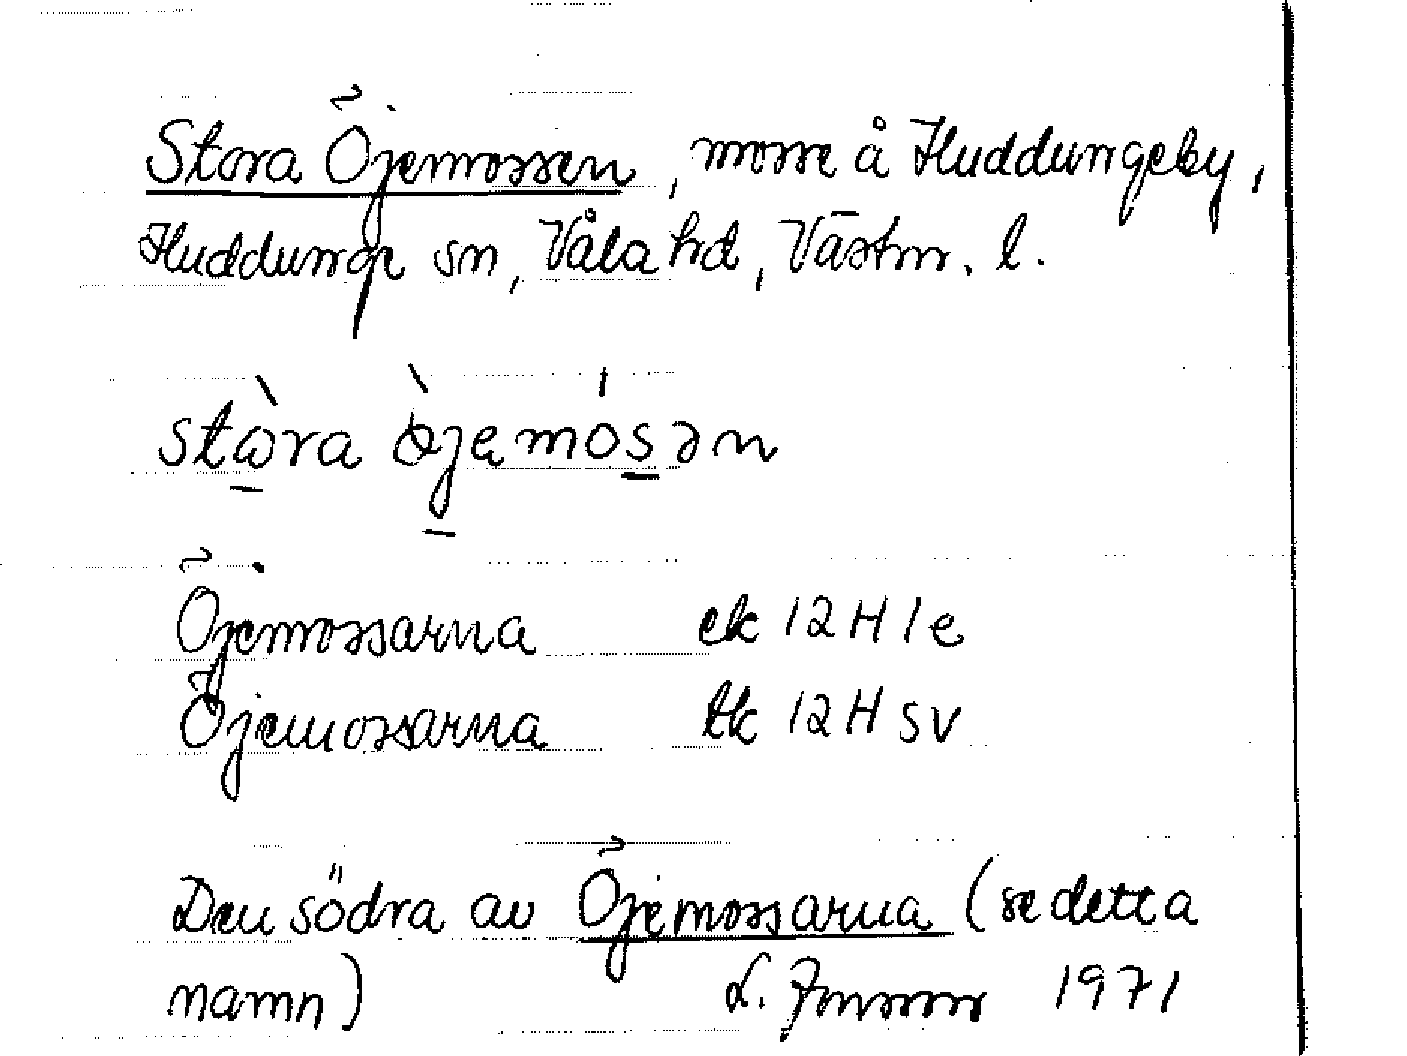 Stora Öjemossen, mosse å Huddungeby,
Huddunge sn, Våla hd, Västm. l.
stɷ̀ra ö̀jemósən
Öjemossarna ek 12H 1e
Öjemossarna tk 12H SV
Den södra av Öjemossarna (se detta
namn) L. 1971